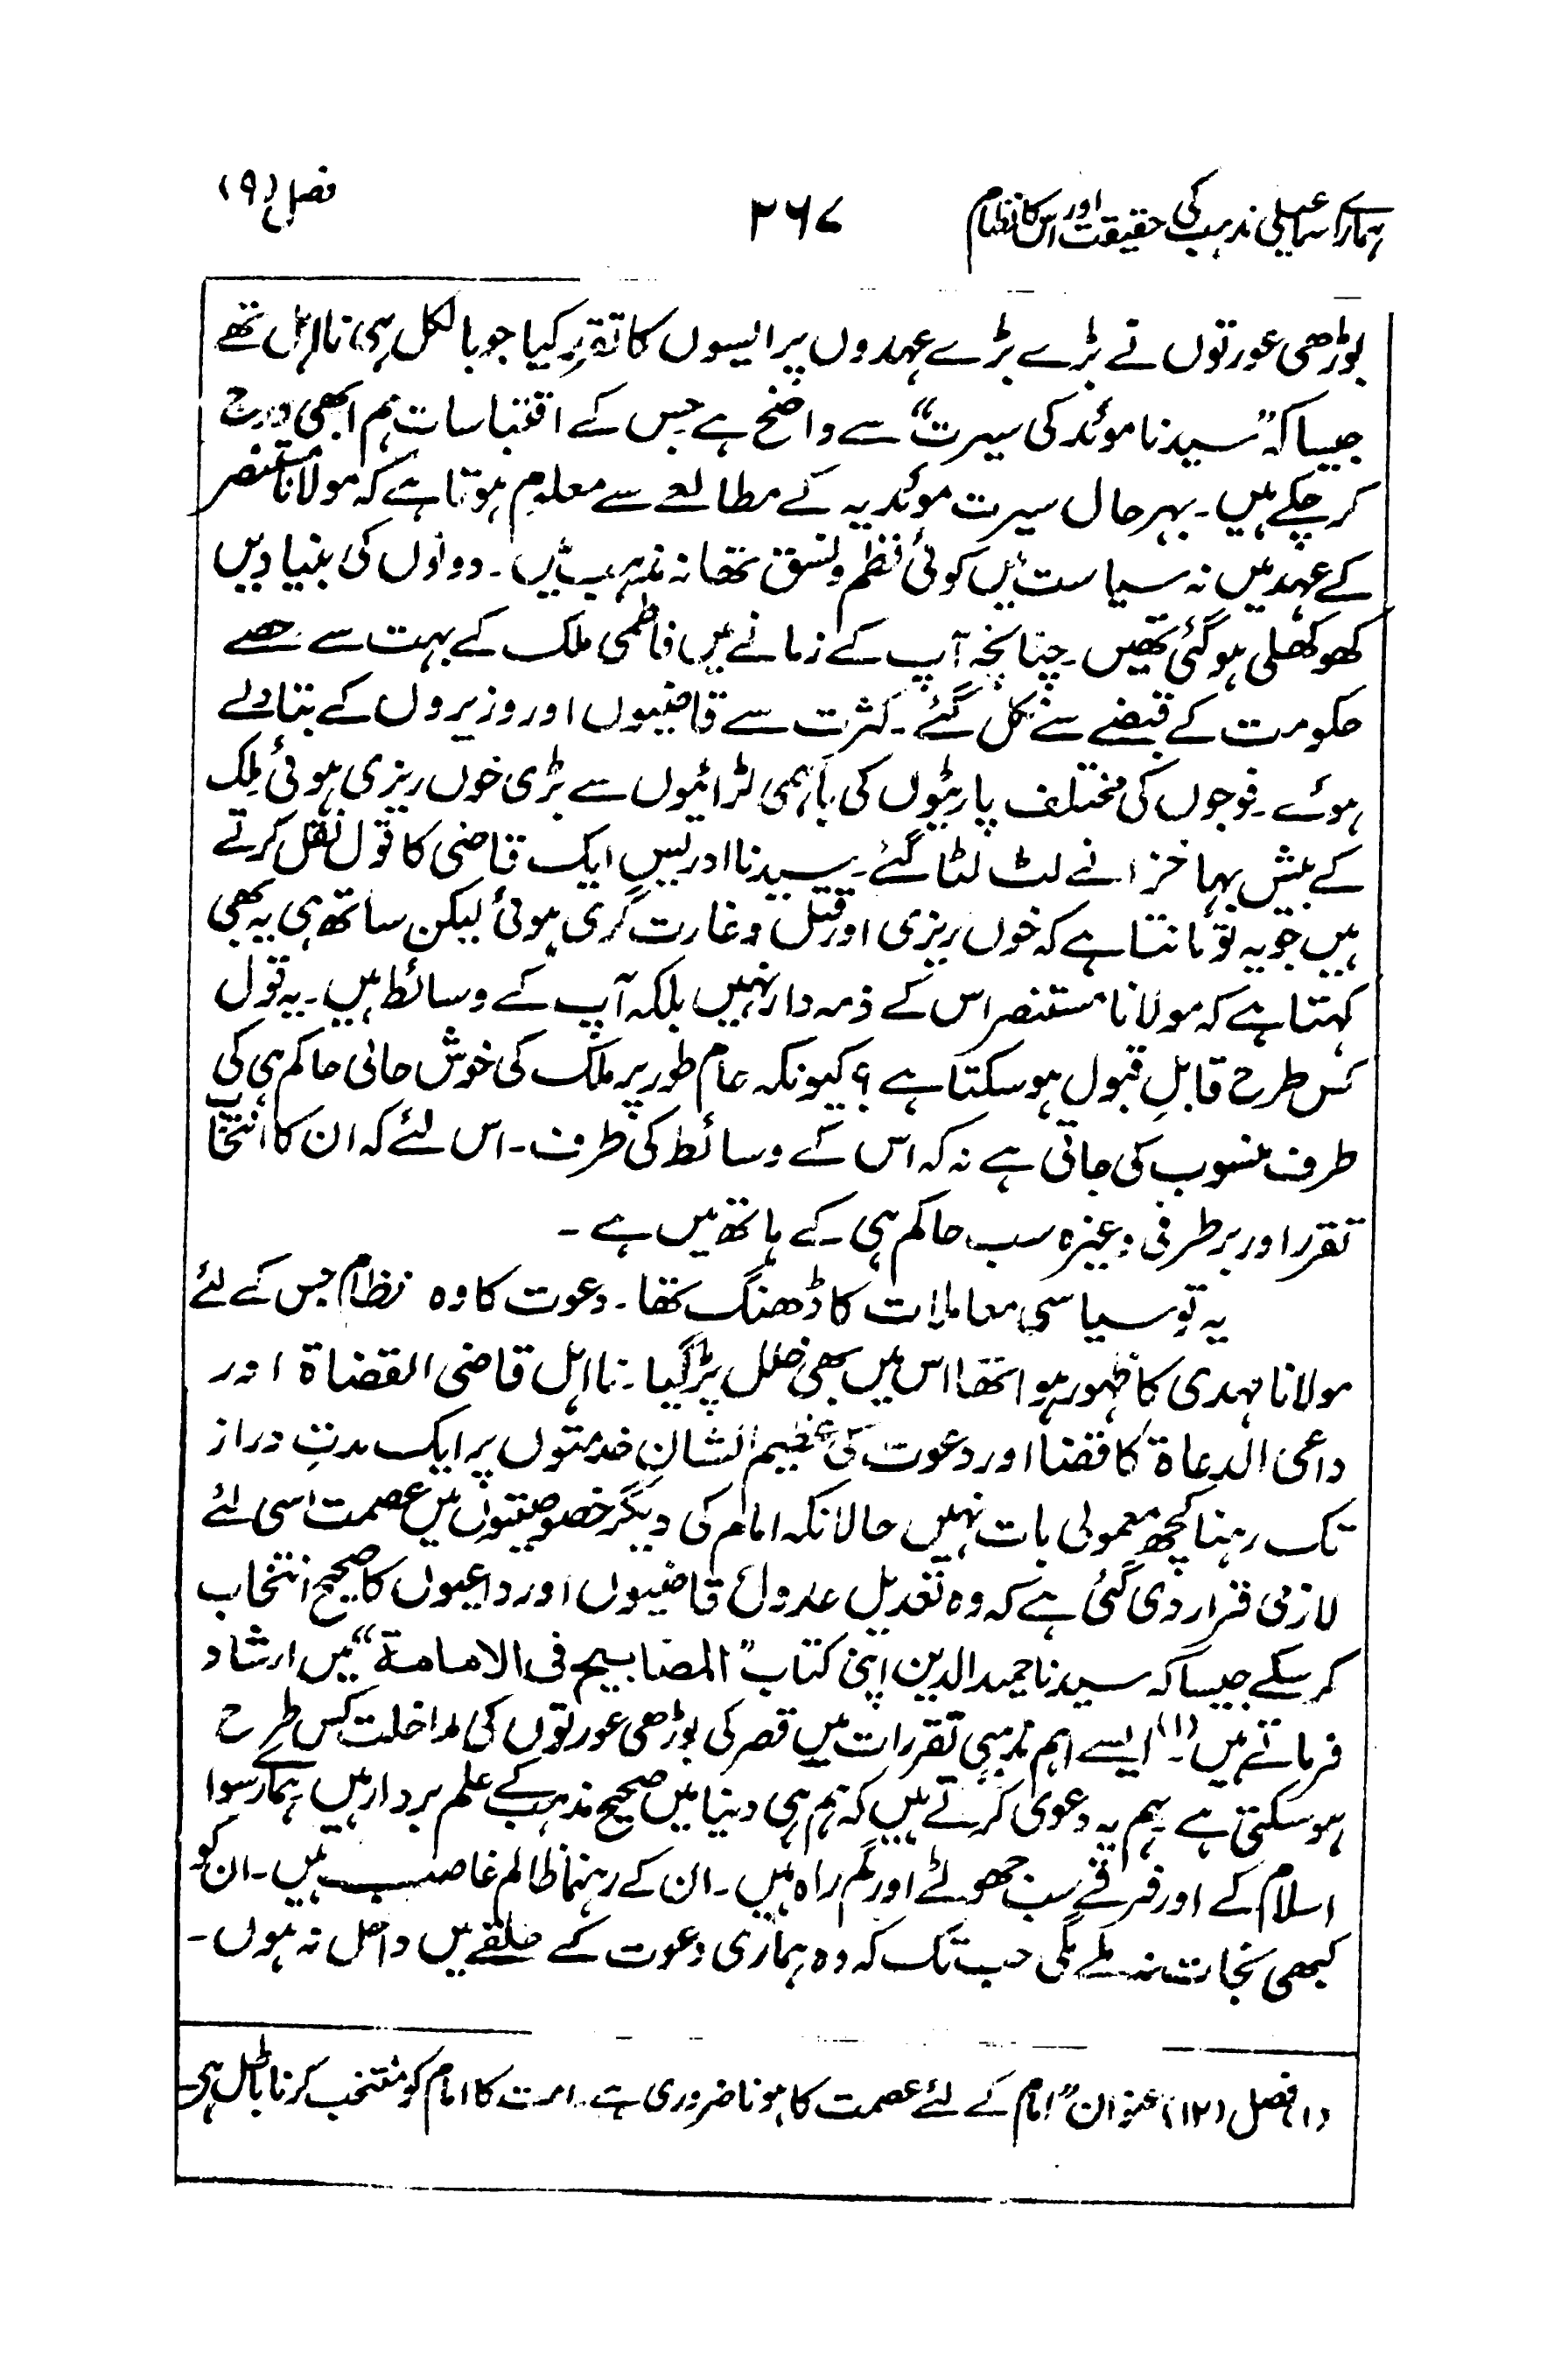 ہمارے اسماعیلی مذہب کی حقیقت اور اس کا نظام ۲۶۷ فصل (۹)
بوڑھی عورتوں نے بڑے بڑے عہدوں پر ایسوں کا تقرر کیا جو بالکل ہی نااہل تھے
جیسا کہ ”سیدنا موئد کی سیرت“ سے واضح ہے جس کے اقتباسات ہم ابھی درج
کر چکے ہیں۔ بہر حال سیرت موئدیہ کے مطالعے سے معلوم ہوتا ہے کہ مولانا مستنصر
کے عہد میں نہ سیاست میں کوئی نظم و نسق تھا نہ مذہب میں۔ دونوں کی بنیادیں
کھوکھلی ہو گئی تھیں۔ چنانچہ آپ کے زمانے میں فاطمی ملک کے بہت سے حصے
حکومت کے قبضے سے نکل گئے۔ کثرت سے قاضیوں اور وزیروں کے تبادلے
ہوئے۔ فوجوں کی مختلف پارٹیوں کی باہمی لڑائیوں سے بڑی خوں ریزی ہوئی ملک
کے بیش بہا خزانے لٹ لٹا گئے۔ سیدنا ادریس ایک قاضی کا قول نقل کرتے
ہیں جو یہ تو مانتا ہے کہ خوں ریزی اور قتل و غارت گری ہوئی لیکن ساتھ ہی یہ بھی
کہتا ہے کہ مولانا مستنصر اس کے ذمہ دار نہیں بلکہ آپ کے وسائط ہیں۔ یہ قول
کس طرح قابلِ قبول ہو سکتا ہے؟ کیونکہ عام طور پر ملک کی خوش حالی حاکم ہی کی
طرف منسوب کی جاتی ہے نہ کہ اس کے وسائط کی طرف۔ اس لئے کہ ان کا انتخاب
تقرر اور برطرفی وغیرہ سب حاکم ہی کے ہاتھ میں ہے۔
یہ تو سیاسی معاملات کا ڈھنگ تھا۔ دعوت کا وہ نظام جس کے لئے
مولانا مہدی کا ظہور ہوا تھا اس میں بھی خلل پڑ گیا۔ نااہل قاضی القضاۃ اور
داعی الدعاۃ کا قضا اور دعوت کی عظیم الشان خدمتوں پر ایک مدتِ دراز
تک رہنا کچھ معمولی بات نہیں حالانکہ امام کی دیگر خصوصیتوں میں عصمت اسی لئے
لازمی قرار دی گئی ہے کہ وہ تعدیل عدول قاضیوں اور داعیوں کا صحیح انتخاب
کر سکے جیسا کہ سیدنا حمید الدین اپنی کتاب ”المصابیح فی الامامۃ“ میں ارشاد
فرماتے ہیں (۱)۔ ایسے اہم مذہبی تقررات میں قصر کی بوڑھی عورتوں کی مداخلت کس طرح
ہو سکتی ہے ہم یہ دعویٰ کرتے ہیں کہ ہم ہی دنیا میں صحیح مذہب کے علم بردار ہیں ہمارے سوا
اسلام کے اور فرقے سب جھوٹے اور گم راہ ہیں۔ ان کے رہنما ظالم غاصب ہیں۔ ان کو
کبھی نجات نہ ملے گی جب تک کہ وہ ہماری دعوت کے حلقے میں داخل نہ ہوں۔
(۱) فصل (۱۲) عنوان ”امام کے لئے عصمت کا ہونا ضروری ہے۔ امت کا امام کو منتخب کرنا باطل ہے